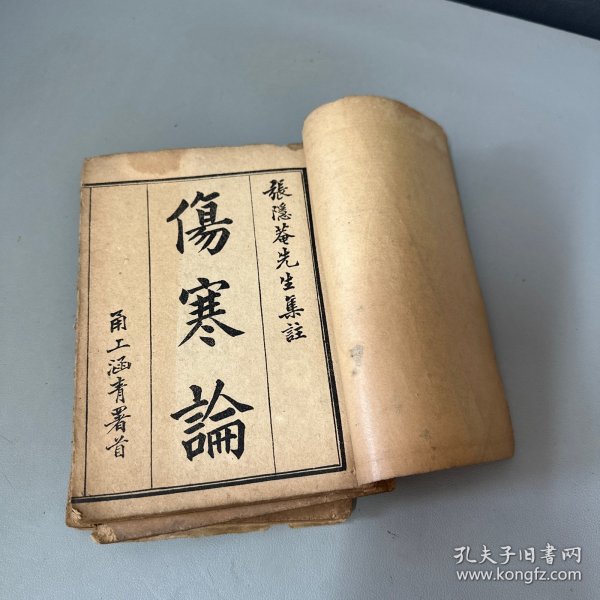 張隱菴先生集註
傷寒論
甬工涵青署首
孔夫子旧書网
www.kongfz.com